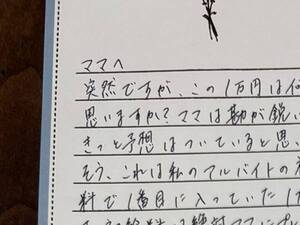 ママへ
突然ですが、この1万円は何
思いますか?ママは勘が鋭い
きっと予想はついていると思い
そう、これは私のアルバイトの
料で1番目に入っていた1